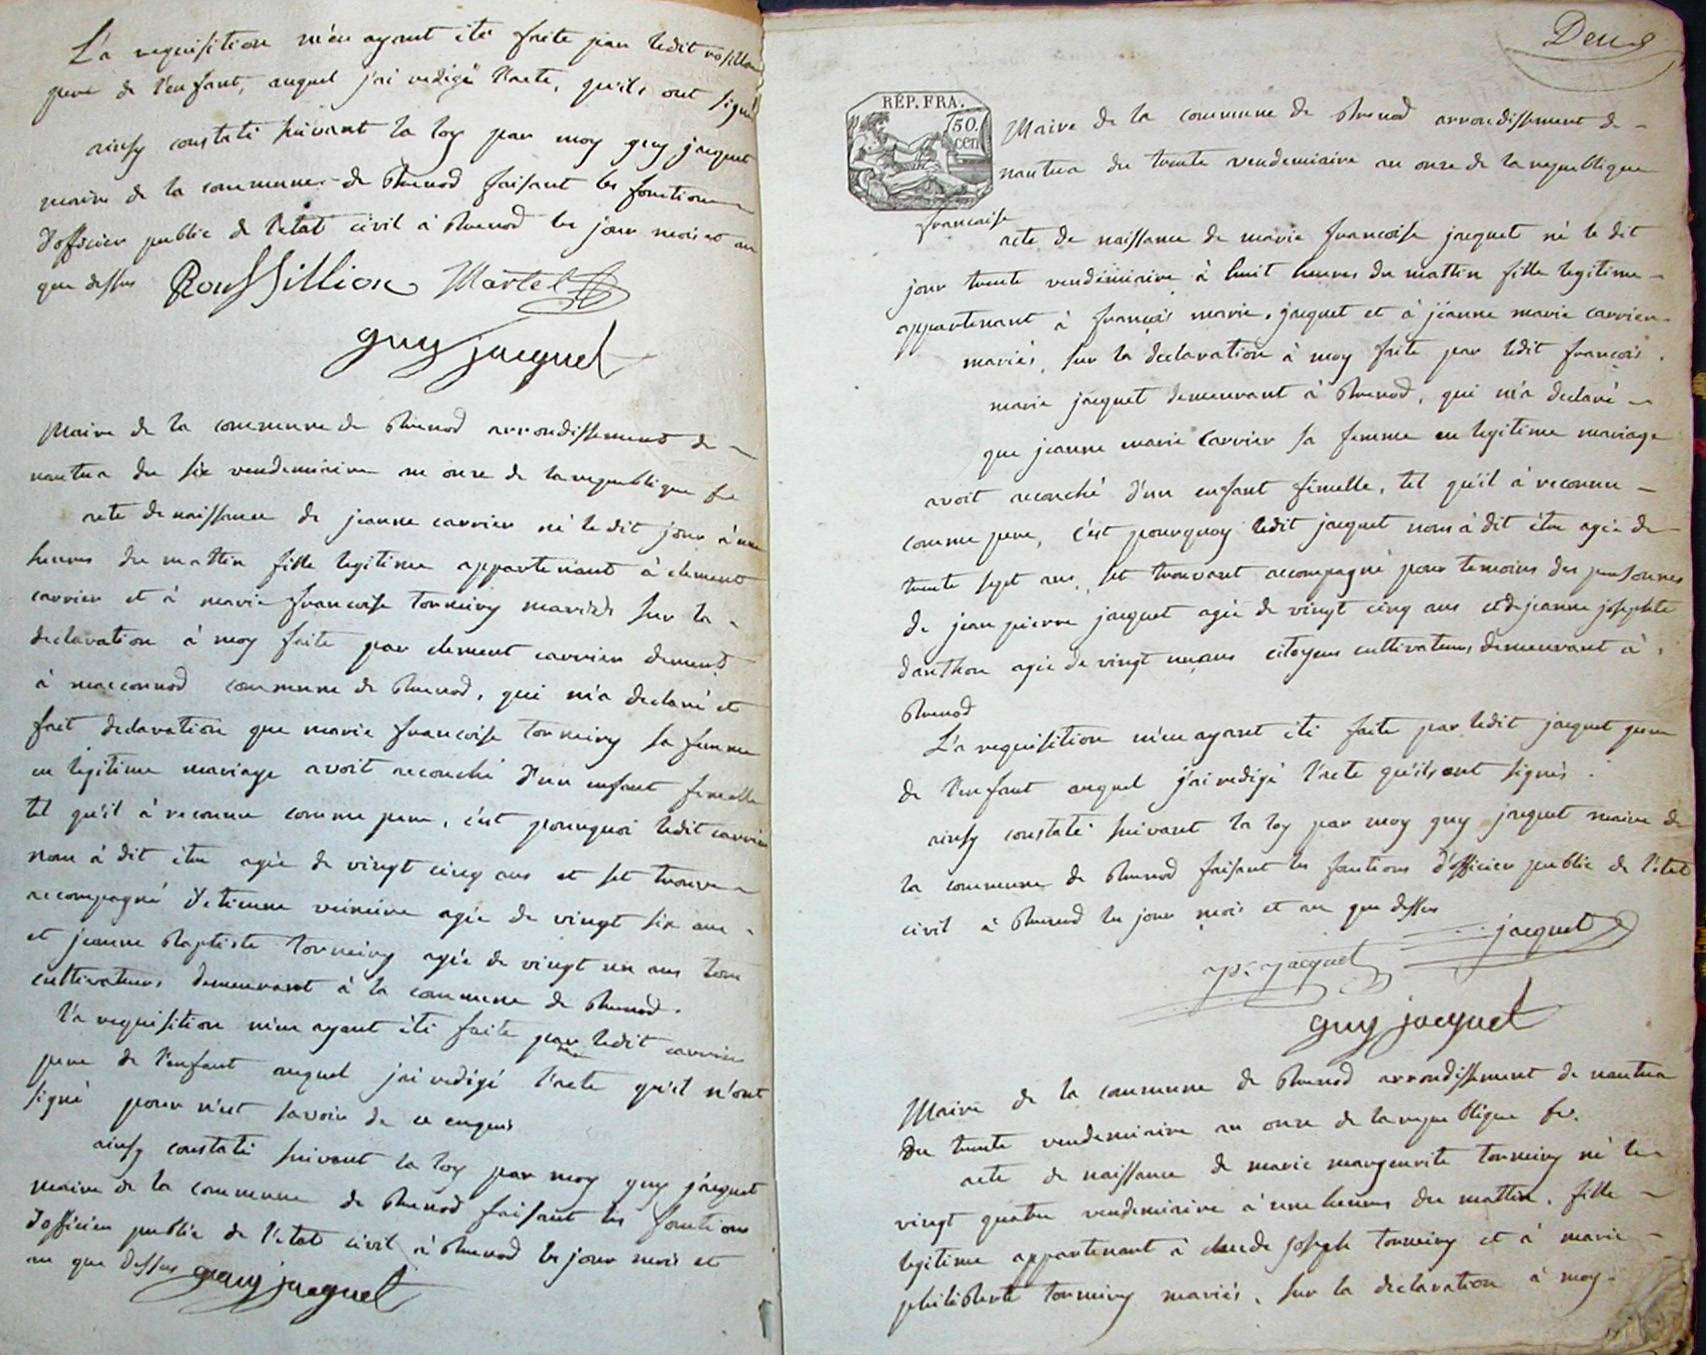 La requisition m'en ayant été faite par ledit rosillon
pere de l'enfant, auquel j'ai redigé l'acte, qu'ils ont signé
ainsy constaté suivant la loy par moy guy jacquet
maire de la commune de Brenod faisant les fonctions
d'officier public de l'état civil à Brenod les jour mois et an
que dessus Roussillion Martel
guy jacquet
Maire de la commune de Brenod arrondissement de
nantua du six vendemiaire an onze de la republique fr
acte de naissance de jeanne carrier né le dit jour à une
heures du mattin fille legitime appartenant à clement
carrier et à marie francoise tormiry mariés sur la
declaration à moy faite par clement carrier demeut
à maconnod commune de Brenod, qui m'a declaré et
fait declaration que marie francoise tormiry sa femme
en legitime mariage avoit accouché d'un enfant femelle
tel qu'il à reconnu comme pere, c'est pourquoi ledit carrier
nous à dit étre agée de vingt cinq ans et set trouve
accompagné d'etienne agée de vingt six ans
et jeanne baptiste tormiry agée de vingt un ans tous
cultivateurs demeurant à la commune de Brenod.
La requisition m'en ayant été faite par ledit carrier
pere de l'enfant auquel j'ai redigé l'acte qu'il n'ont
signé pour n'et savoir de ce enquis
ainsy constaté suivant la loy par moy guy jacquet
maire de la commune de Brenod faisant les fonctions
d'officier public de l'état civil à Brenod les jour mois et
an que dessus guy jacquet
Deux
RÉP. FRA.
50.
cen
Maire de la commune de Brenod arrondissement de
nantua du trente vendemiaire an onze de la republique
francaise
acte de naissance de marie francoise jacquet né le dit
jour trente vendémiaire à huit heures du mattin fille legitime
appartenant à françois marie jacquet et à jéanne marie carrier
mariés, sur la declaration à moy faite par ledit françois
marie jacquet demeurant à Brenod, qui m'a declaré
que jeanne marie carrier sa femme en legitime mariage
avoit accouché d'un enfant femelle, tel qu'il à reconnu
comme pere, c'est pourquoy ledit jacquet nous à dit étre agée de
trente sept ans, set trouvant accompagné pour temoins des personnes
de jean pierre jacquet agée de vingt cinq ans et de jeanne josephte
danthon agée de vingt un ans citoyens cultivateurs demeurant à
Brenod
La requisition m'en ayant été faite par ledit jacquet pere
de l'enfant auquel j'ai redigé l'acte qu'ils ont signés.
ainsy constaté suivant la loy par moy guy jacquet maire de
la commune de Brenod faisant les fonctions d'officier public de l'état
civil à Brenod les jour mois et an que dessus
jacquet
jp. jacquet
guy jacquet
Maire de la commune de Brenod arrondissement de nantua
du trente vendemiaire an onze de la republique fr.
acte de naissance de marie marguerite tormiry né le
vingt quatre vendemiaire à une heures du mattin. fille
legitime appartenant à claude joseph tormiry et à marie
philiberte tormiry mariés, sur la declaration à moy